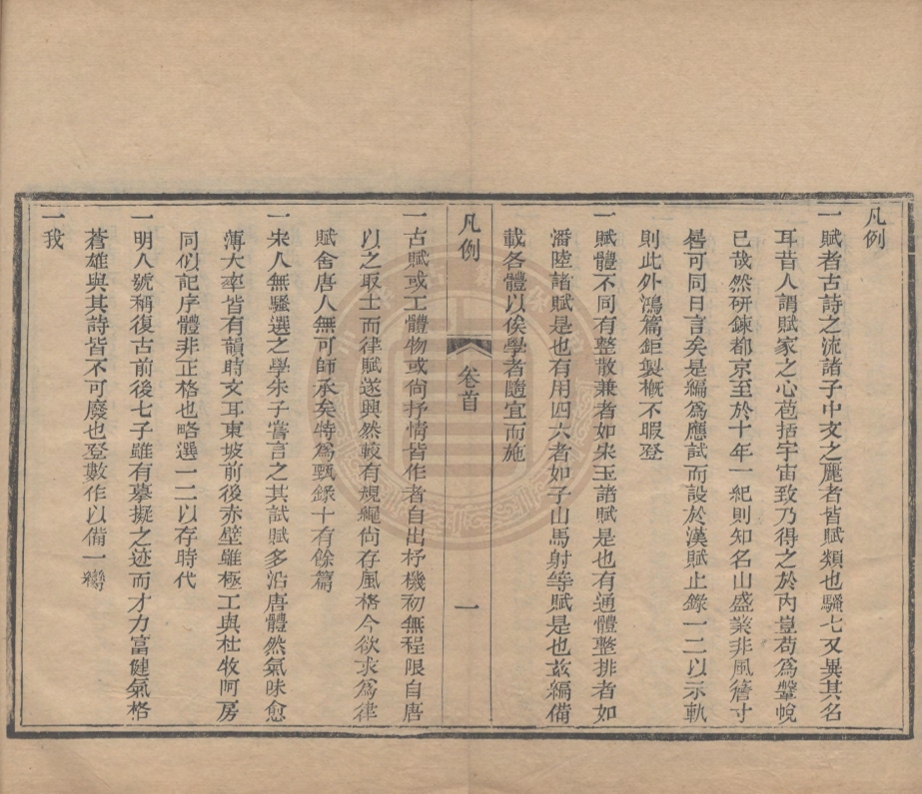 凡例
一賦者古詩之流諸子中文之麗者皆賦類也騷七又異其名
耳昔人謂賦家之心苞括宇宙致乃得之於內豈苟為鞶帨
已哉然研鍊都京至於十年一紀則知名山盛業非風簷寸
晷可同日言矣是編為應試而設於漢賦止錄一二以示軌
則此外鴻篇鉅製概不暇登
一賦體不同有整散兼者如宋玉諸賦是也有通體整排者如
潘陸諸賦是也有用四六者如子山馬射等賦是也茲編備
載各體以俟學者隨宜而施
凡例
卷首
一
一古賦或工體物或尚抒情皆作者自出杼機初無程限自唐
以之取士而律賦遂興然較有規繩尚存風格今欲求為律
賦舍唐人無可師承矣特為甄錄十有餘篇
一宋人無騷選之學朱子嘗言之其試賦多沿唐體然氣味愈
薄大率皆有韻時文耳東坡前後赤壁雖極工與杜牧阿房
同似記序體非正格也略選一二以存時代
一明人號稱復古前後七子雖有摹擬之迹而才力富健氣格
蒼雄與其詩皆不可廢也登數作以備一臠
一我